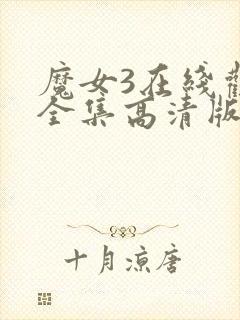 魔女3在线
全集高清版
十月凉唐